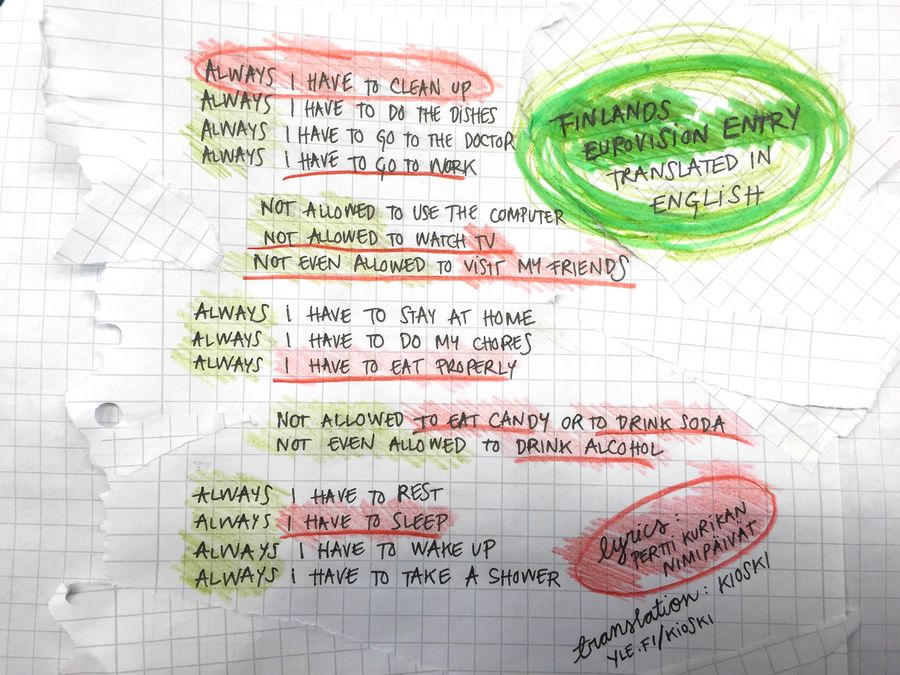 ALWAYS I HAVE TO CLEAN UP
ALWAYS I HAVE TO DO THE DISHES
ALWAYS I HAVE TO GO TO THE DOCTOR
ALWAYS I HAVE TO GO TO WORK
FINLANDS
EUROVISION ENTRY
TRANSLATED IN
ENGLISH
NOT ALLOWED TO USE THE COMPUTER
NOT ALLOWED TO WATCH TV
NOT EVEN ALLOWED TO VISIT MY FRIENDS
ALWAYS I HAVE TO STAY AT HOME
ALWAYS I HAVE TO DO MY CHORES
ALWAYS I HAVE TO EAT PROPERLY
NOT ALLOWED TO EAT CANDY OR TO DRINK SODA
NOT EVEN ALLOWED TO DRINK ALCOHOL
ALWAYS I HAVE TO REST
ALWAYS I HAVE TO SLEEP
ALWAYS I HAVE TO WAKE UP
ALWAYS I HAVE TO TAKE A SHOWER
lyrics:
PERTTI KURIKAN
NIMIPÄIVÄT
translation: KIOSKI
YLE.FI/KIOSKI